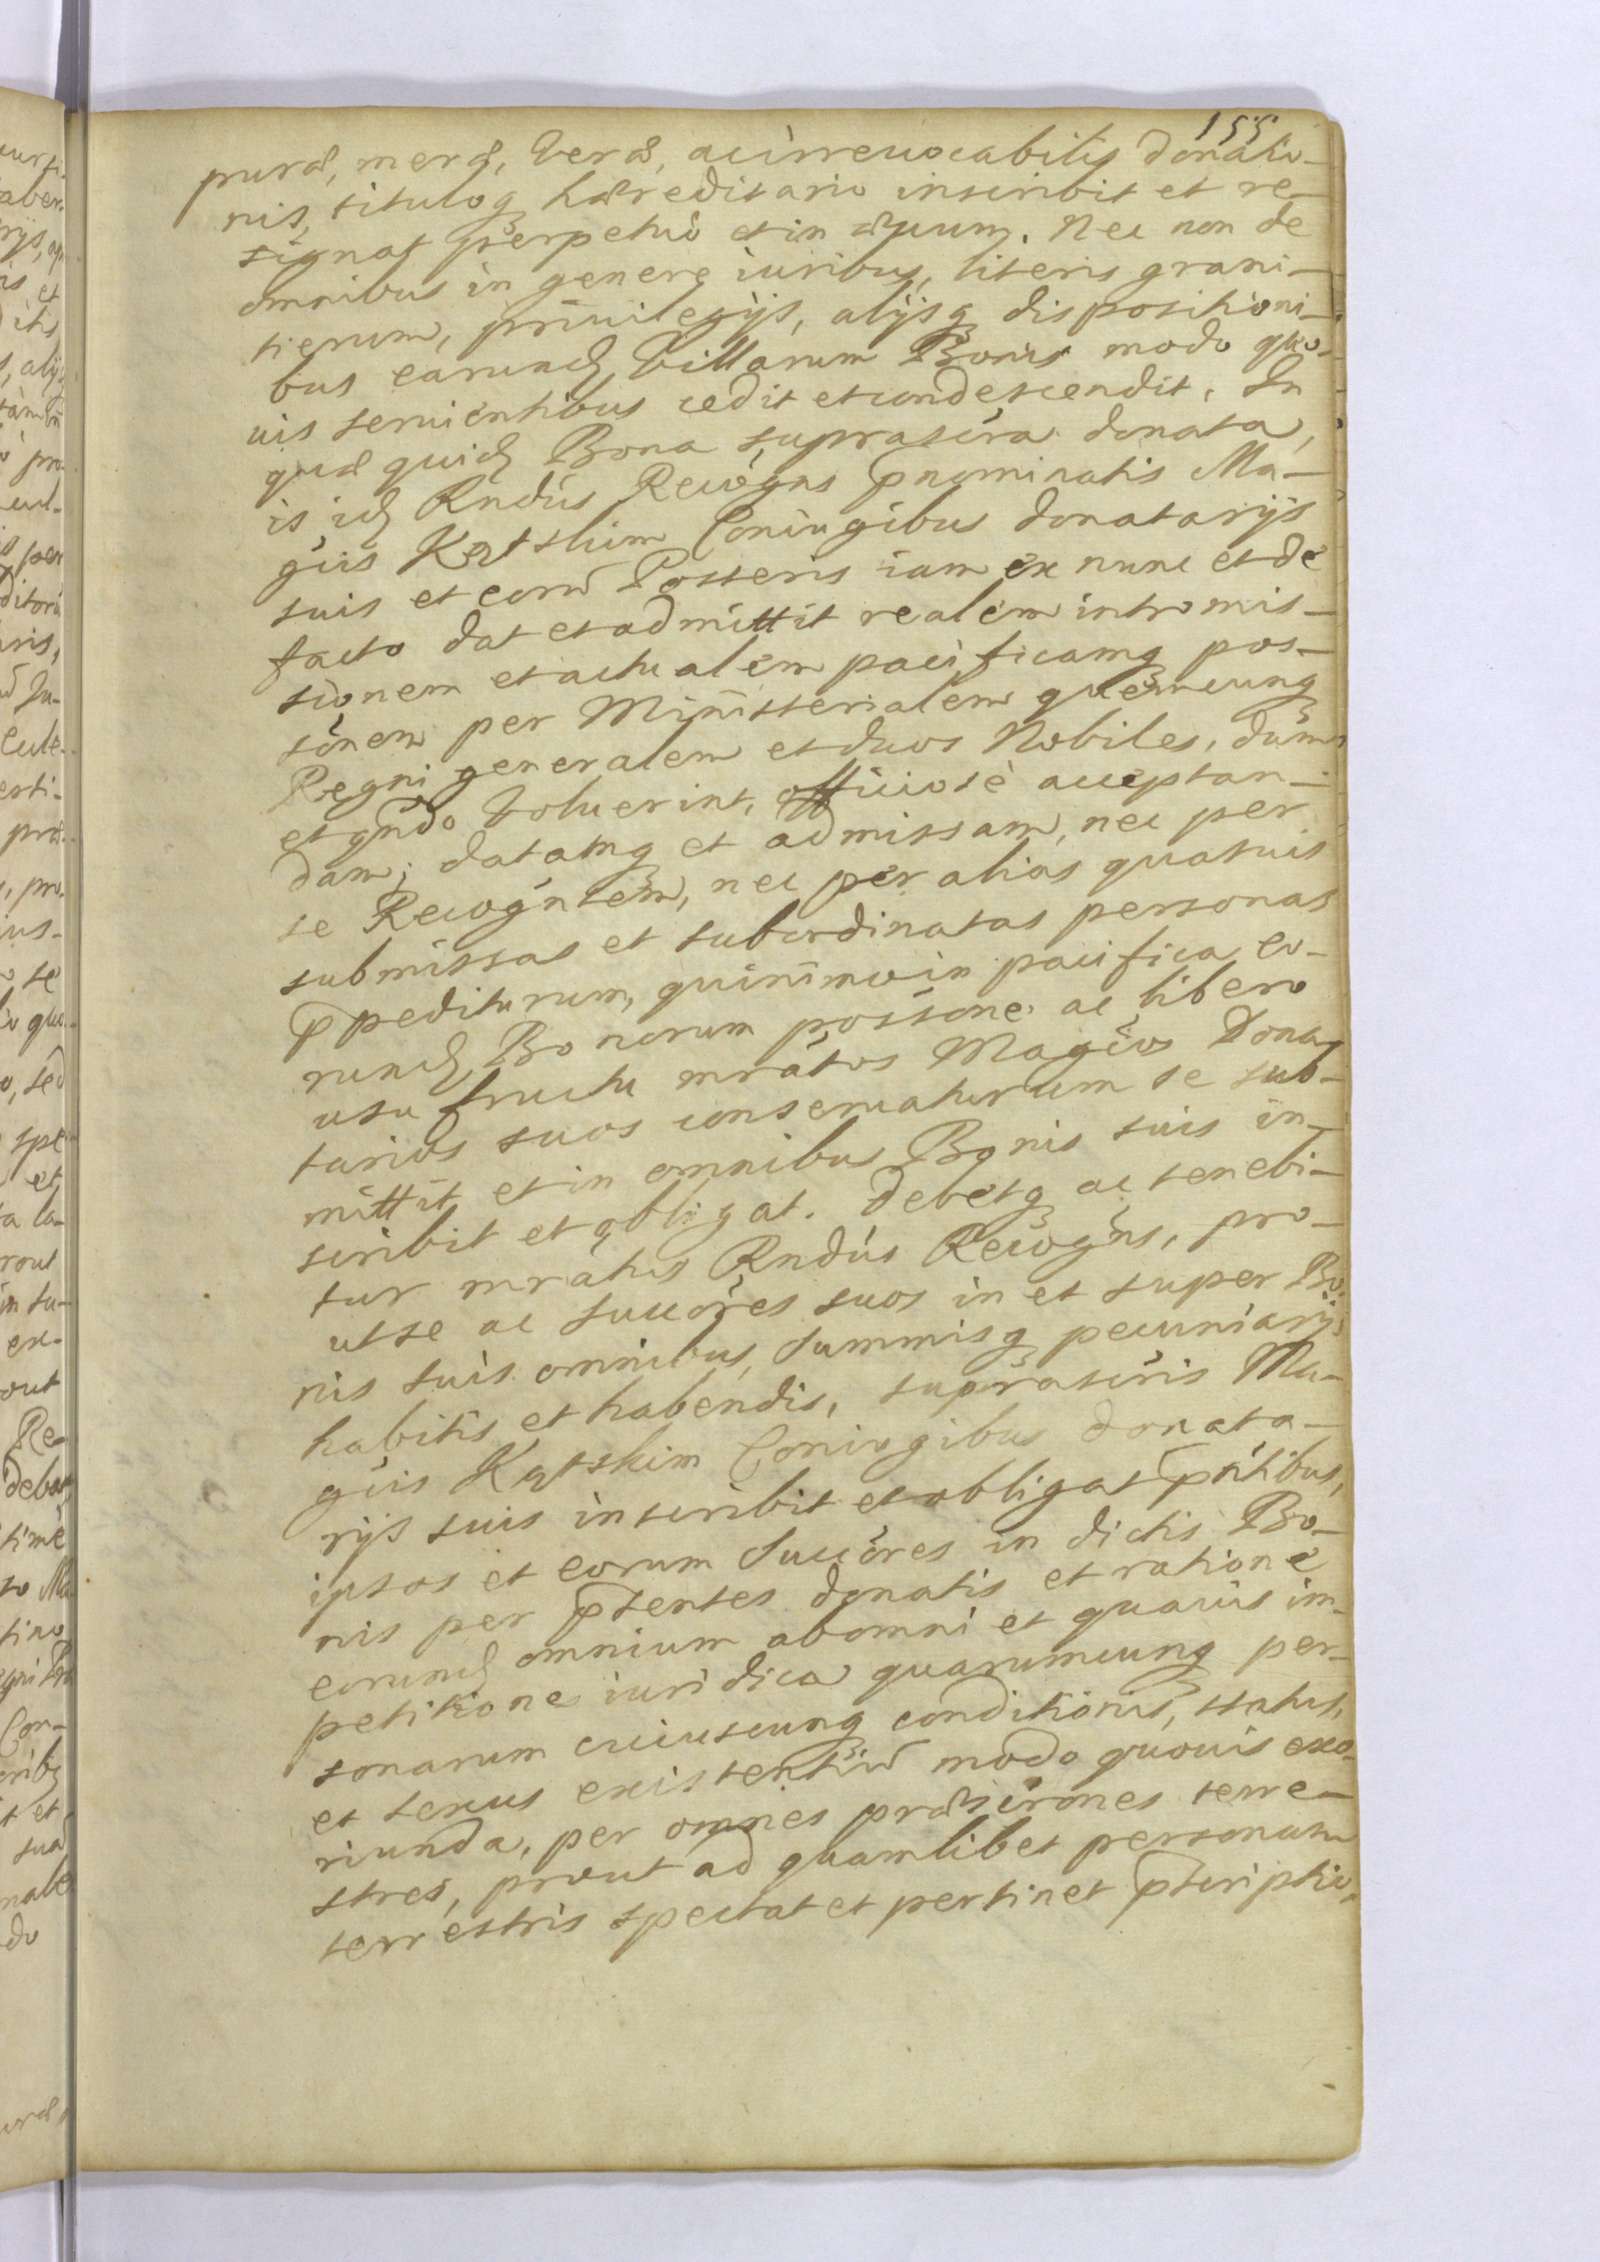 155
puræ, meræ, veræ, ac irreuocabilis donatio-
nis, tituloq hæreditario inscribit et re-
signat perpetuo et in æuum. Nec non de
omnibus in genere iuribus, literis grani-
tierum, priuilegijs, alijsq dispositioni-
bus earund. villarum Bonis modo quo-
uis seruientibus cedit et condescendit. In
quæ quid. Bona suprascra donata,
is id. Rndus Recogns pnominatis Ma-
gcis Kątskim Coniugibus donatarijs
suis et eorū Posteris iam ex nunc et de
facto dat et admittit realem intromis-
sionem et actualem pacificamq pos-
sonem per Ministerialem quemcunq
Regni generalem et duos Nobiles, dum
et qndo voluerint, officiose acceptan-
dam; datamq et admissam, nec per
se Recogntem, nec per alias quasuis
submissas et subordinatas personas
ppediturum, quinimo in pacifica eo-
rund. Bonorum possone ac libero
usu fructu mratos Magcos Dona-
tarios suos conseruaturum se sub-
mittit et in omnibus Bonis suis in-
scribit et obligat. Debetq ac tenebi-
tur mratus Rndus Recogns, pro-
ut se ac succores suos in et super Bo-
nis suis omnibus, summisq pecuniarijs
habitis et habendis, suprascris Ma-
gcis Kątskim Coniugibus donata-
rijs suis inscribit et obligat pntibus,
ipsos et eorum succores in dictis Bo-
nis per pntentes donatis et ratione
eorund. omnium ab omni et quauis im-
petitione iuridica quarumcunq per-
sonarum cuiuscunq conditionis, status,
et sexus existentiū modo quouis exo-
riunda, per omnes præscriones terre-
stres, prout ad quamlibet personam
terrestris spectat et pertinet pscriptio,